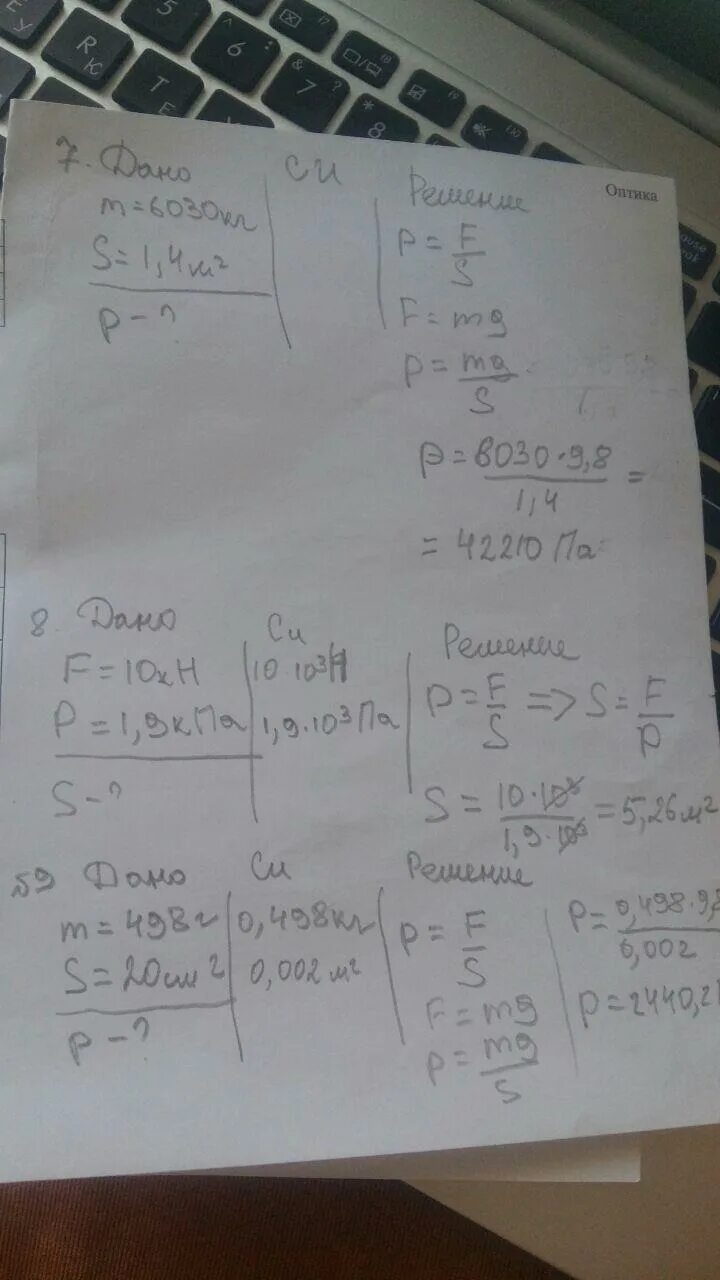 Оптика
7. Дано
m = 6030 кг
S = 1,4 м²
P - ?
СИ
Решение
P = F/S
F = mg
P = mg/S
P = 6030 · 9,8 / 1,4 =
= 42210 Па
8. Дано
F = 10кН
P = 1,9 кПа
S - ?
Си
10 · 10³ Н
1,9 · 10³ Па
Решение
P = F/S => S = F/P
S = 10 · 10³ / 1,9 · 10³ = 5,26 м²
№9 Дано
m = 498 г
S = 20 см²
P - ?
Си
0,498 кг
0,002 м²
Решение
P = F/S
F = mg
P = mg/S
P = 0,498 · 9,8 / 0,002
P = 2440,2